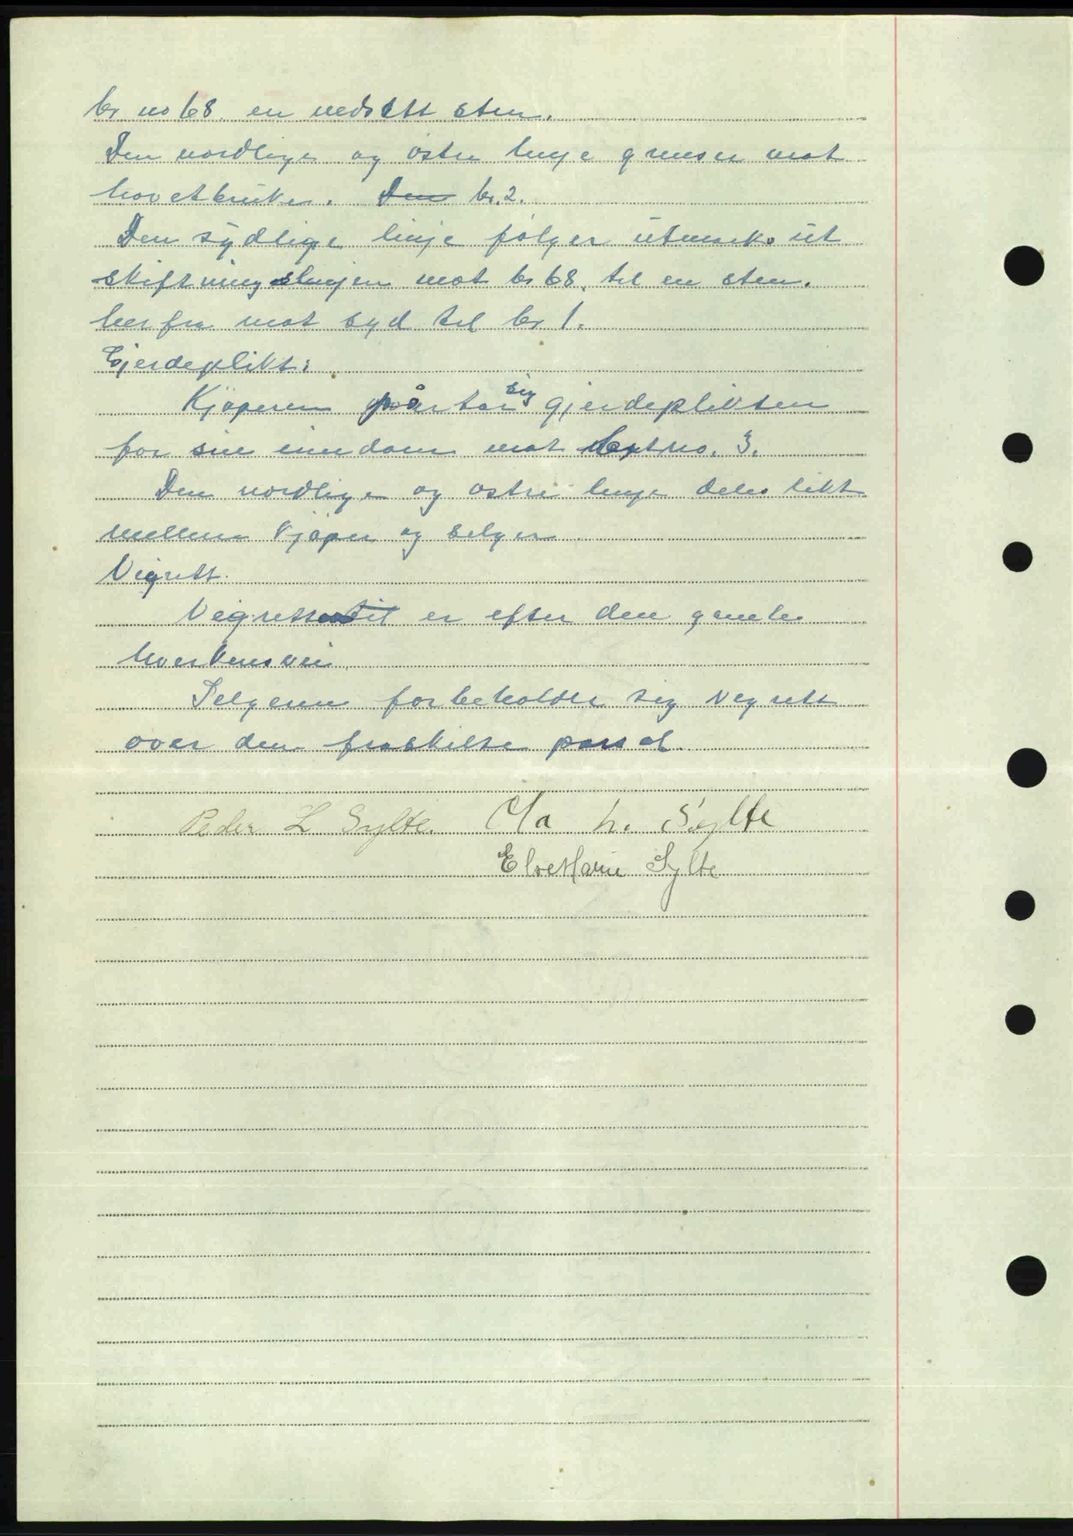 br no 68. en nedsatt sten.
Den nordlige og østre linje grenser mot
hovetbruket. Den br. 2.
Den sydlige linje følger utmarks ut
skiftningslinjen mot br 68. til en sten.
herfra mot syd til br 1.
Gjerdeplikt:
Kjøperen påtar sig gjerdeplikten
for sin eiendom mot br no. 3.
Den nordlige og østre linje deles likt
mellem kjøper og selger
Vegrett.
Vegretten til er efter den gamle
kverkensvei.
Selgeren forbeholder seg vegrett
over den fraskilte parsel.
Peder L Sylte. Ola L. Sylte
Else Marie Sylte